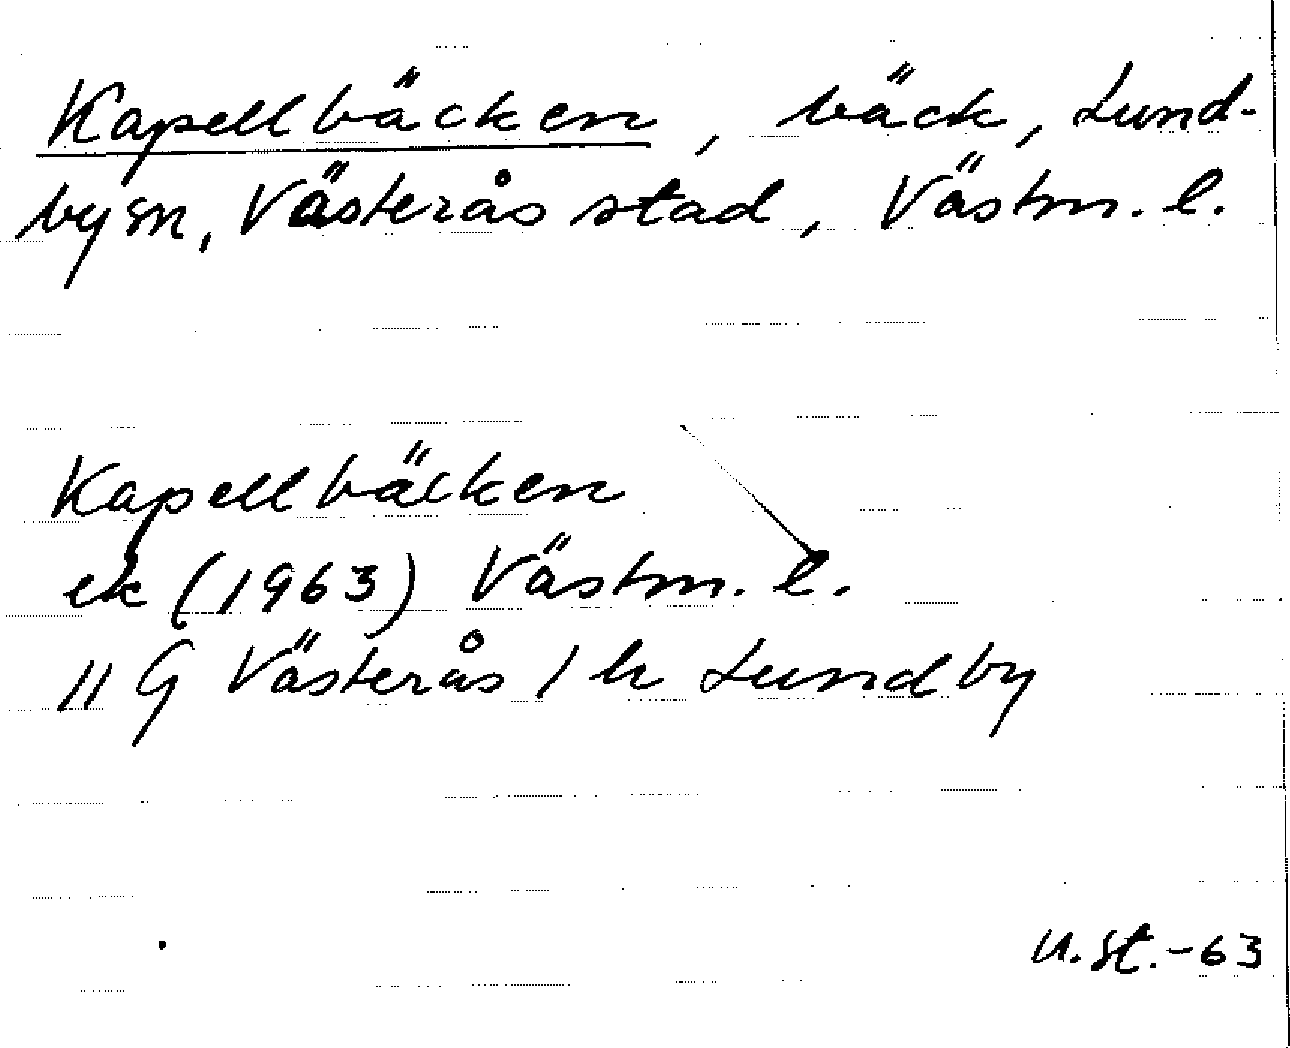 Kapellbäcken, bäck, Lund-
by sn, Västerås stad, Västm. l.
Kapellbäcken
ek (1963) Västm. l.
11 G Västerås 1 h Lundby
U. St. -63